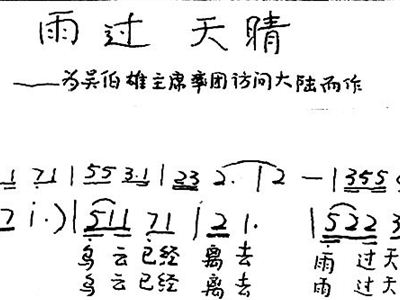 雨过天晴
——为吴伯雄主席率团访问大陆而作
1 71 | 55 3.1 | 23 2. | 2 — | 355
7 i.) | 511 71 | 2 1. | 522 3
乌云已经 离去 雨过天
乌云已经 离去 雨过天